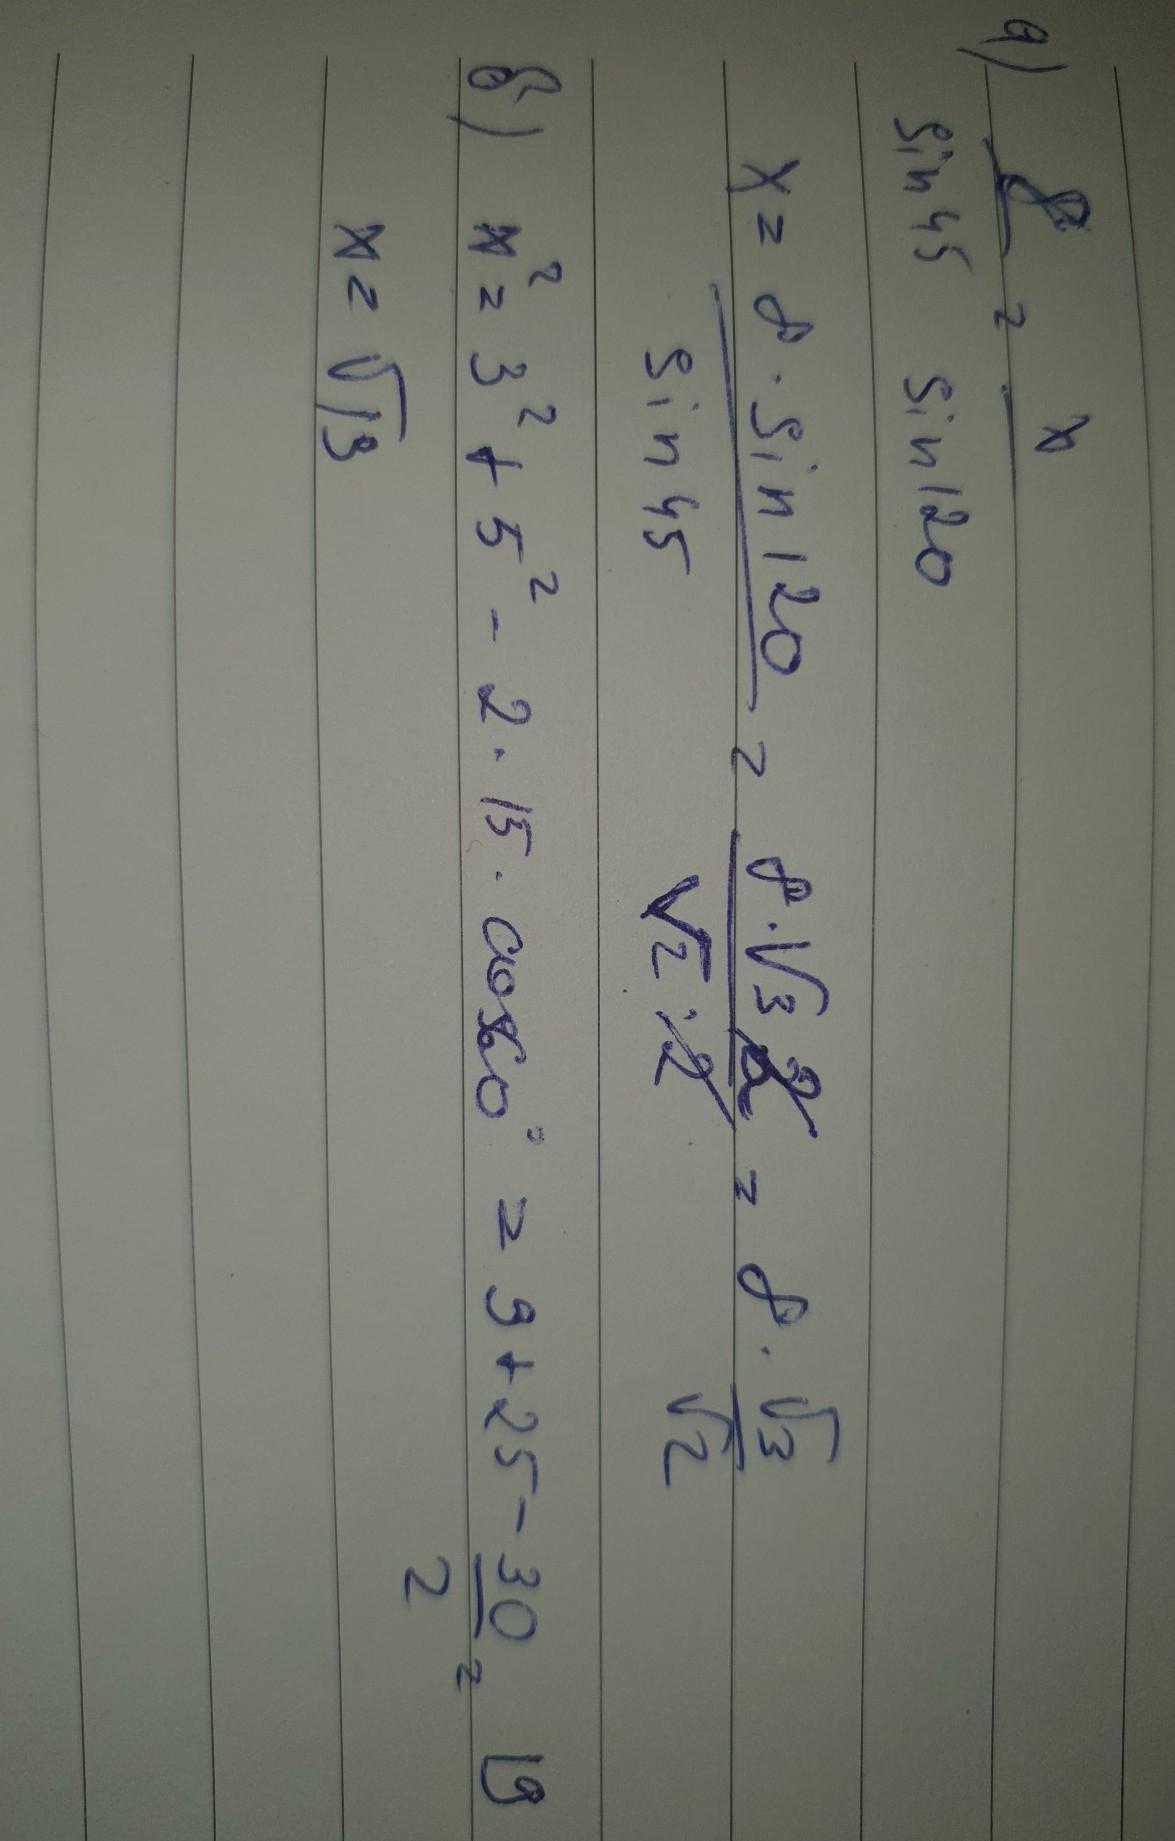 а) 8/sin45 = x/sin120
x = 8·sin120/sin45 = 8·√3·2/√2·2 = 8·√3/√2
б) x² = 3² + 5² - 2·15·cos60° = 9+25-30/2 = 19
x = √19